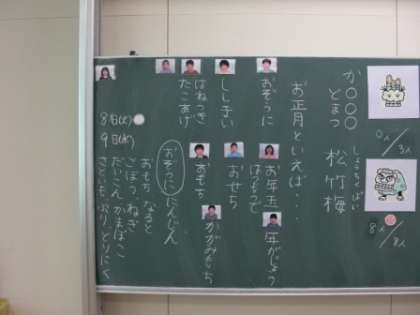 か〇〇〇
どまつ
しょうちくばい
松竹梅
0人/3人
お正月といえば・・・
おぞうに
お年玉
はつもうで
年がじょう
ししまい
おせち
かがみもち
はねつき
たこあげ
おもち
おぞうに
にんじん
おもち なると
ごぼう ねぎ
だいこん かまぼこ
さといも ぶり とりにく
8日(火)
9日(水)